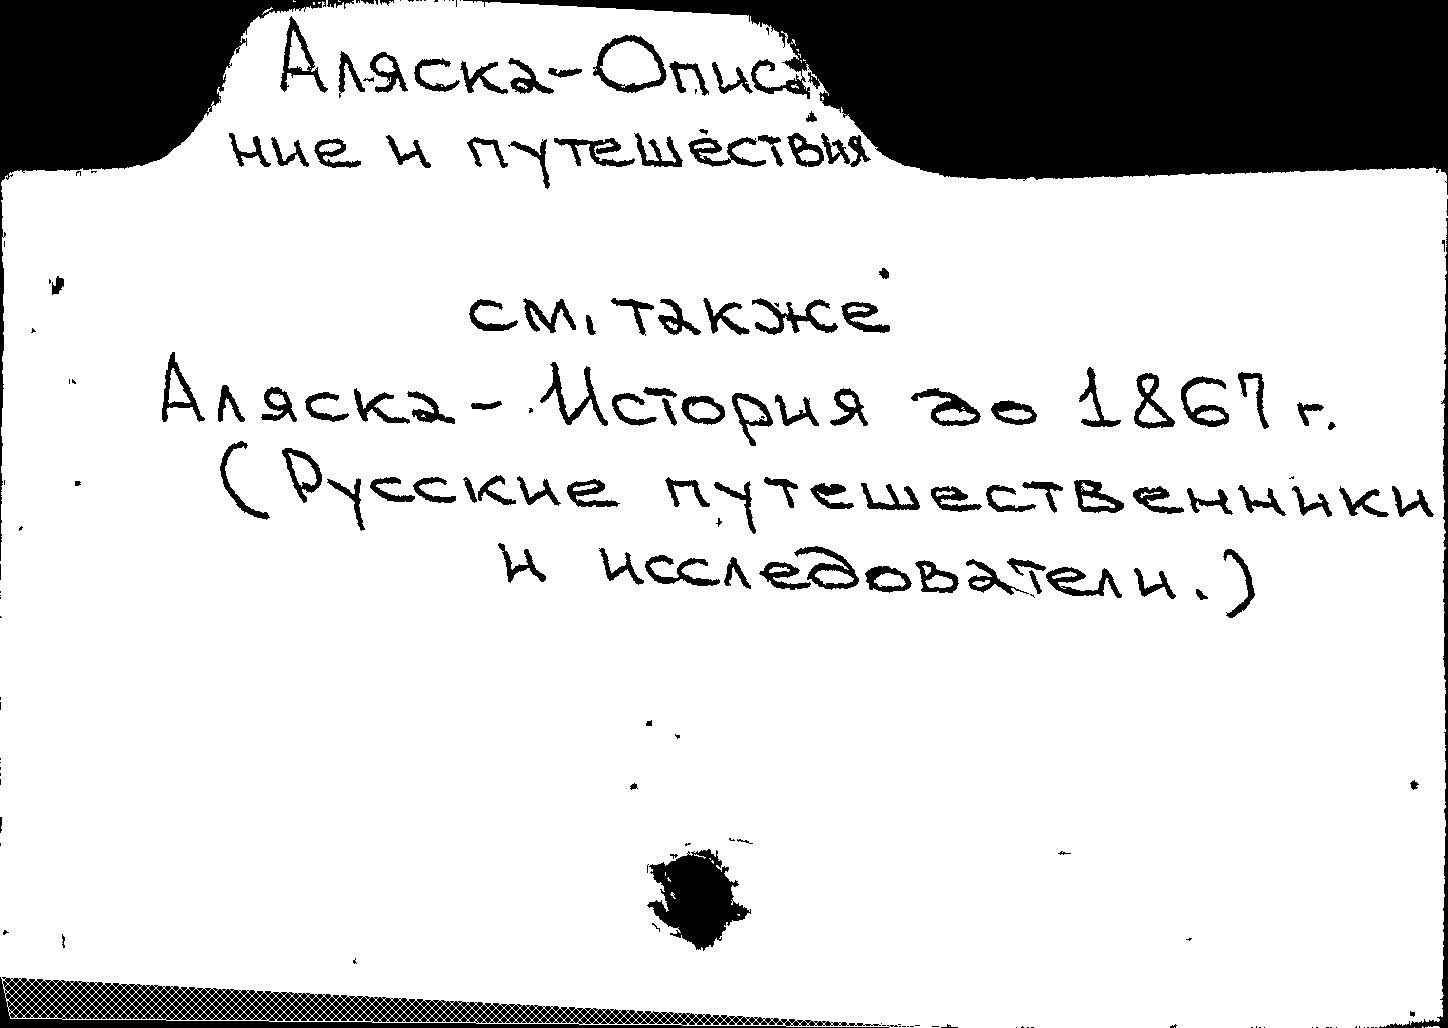 Аляска-Описа
ние и путешествия
см. также
Аляска-История до 1867 г.
(Русские путешественники
и исследователи.)